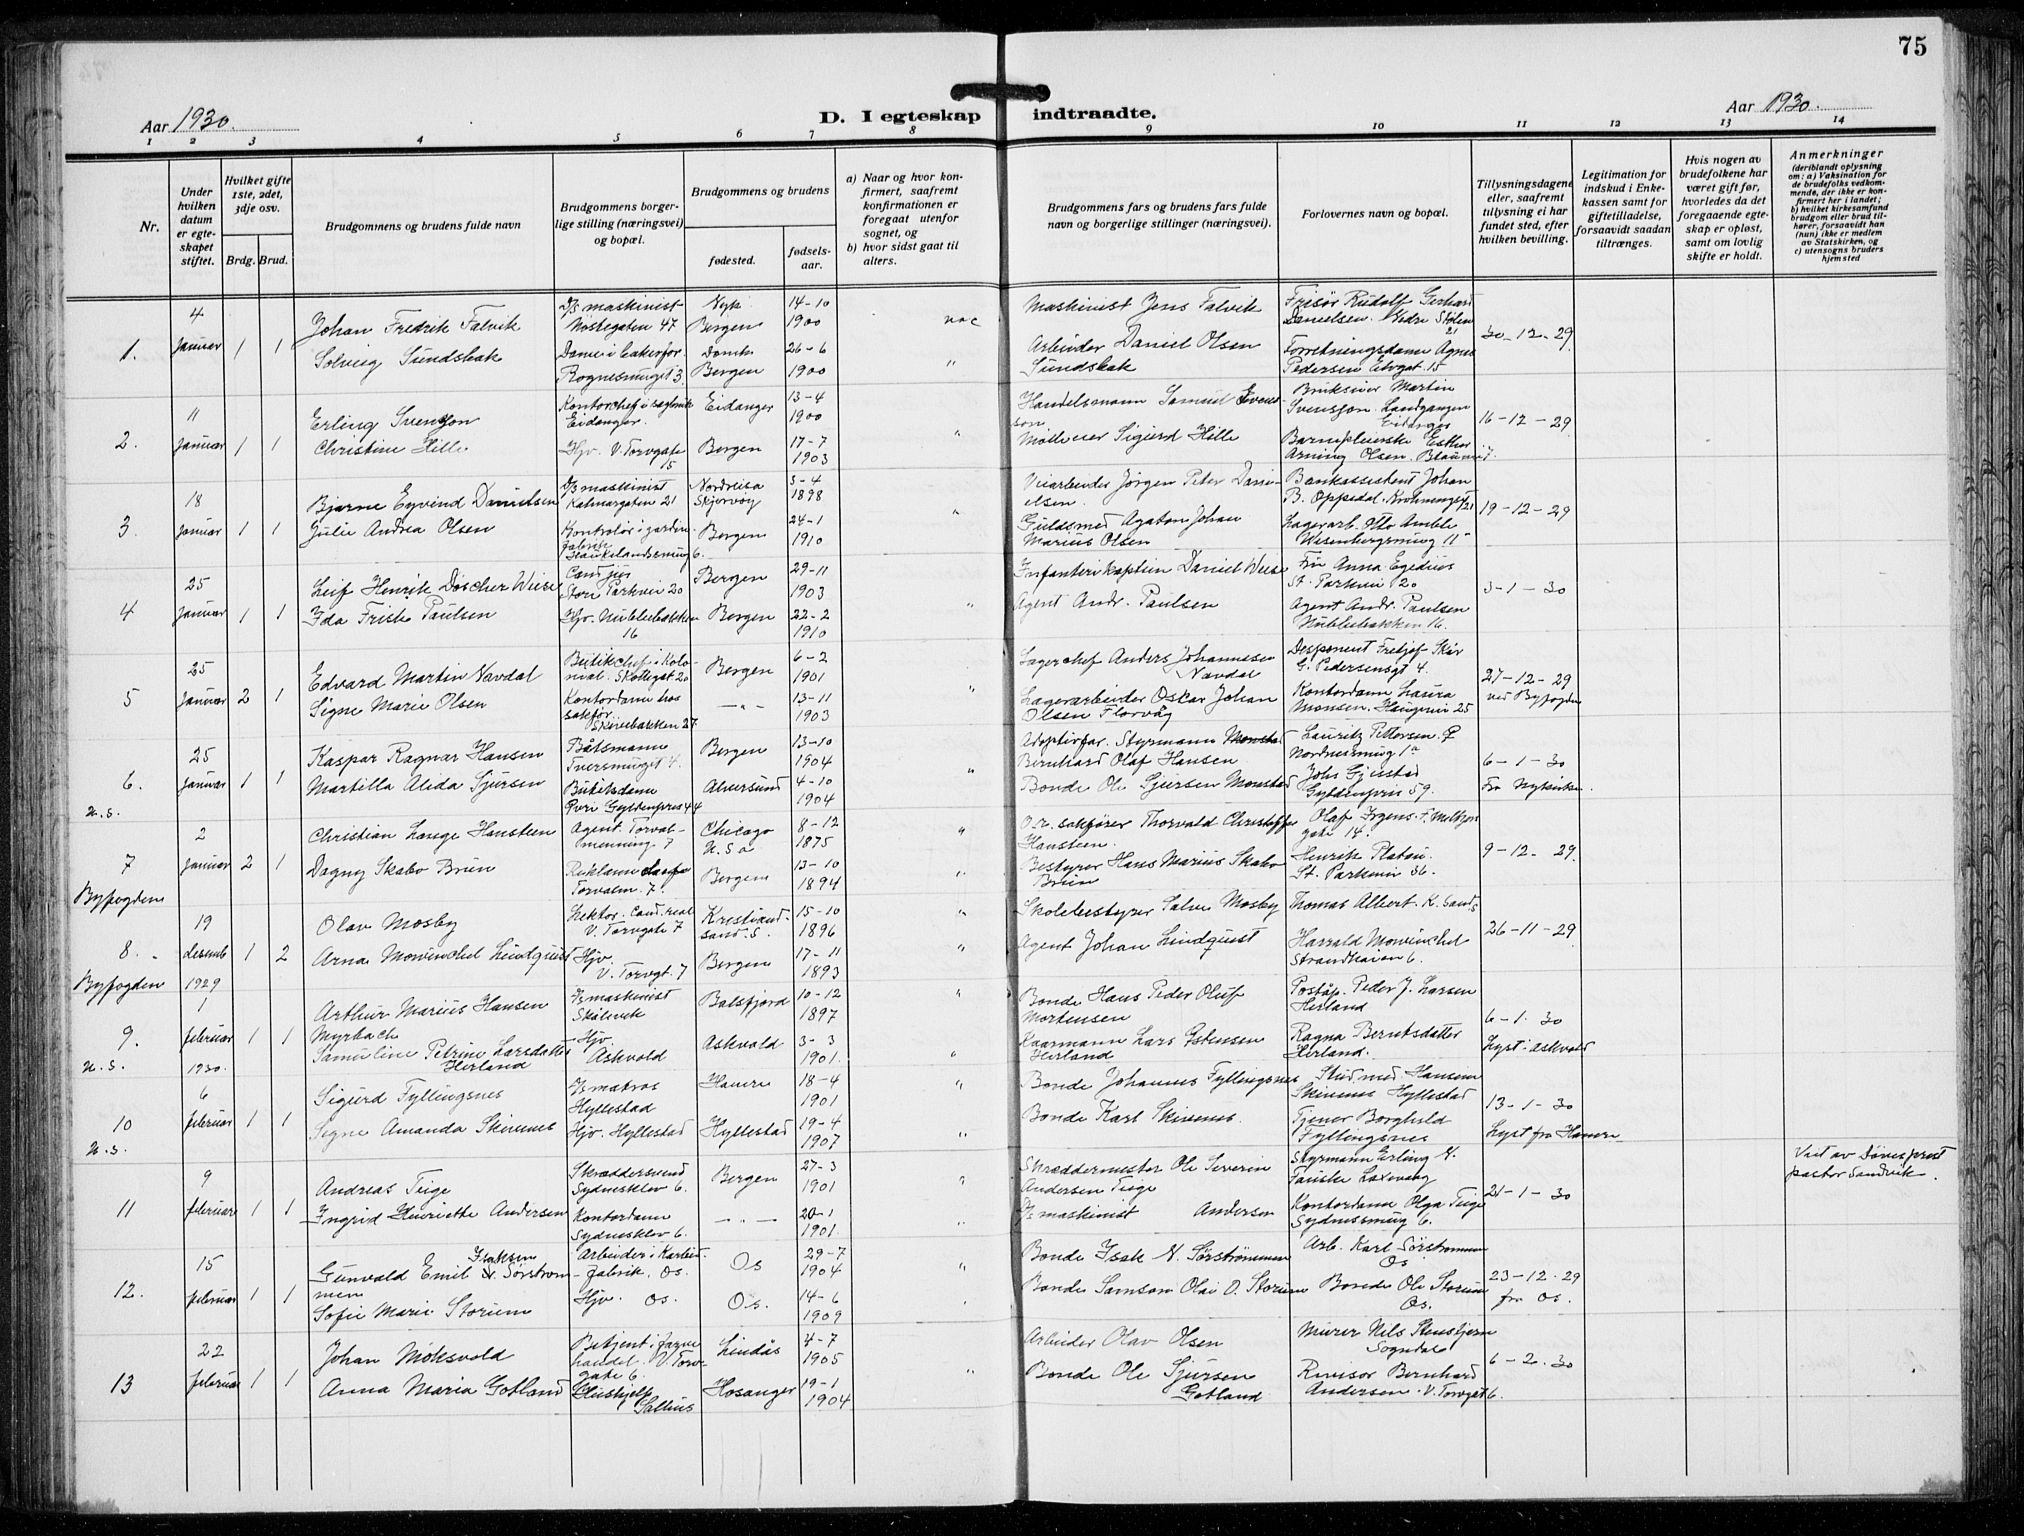 75
Aar 1930.
D. I egteskap indtraadte.
Aar 1930.
1 2 3 4 5 6 7 8 9 10 11 12 13 14
Nr.
Under hvilken datum er egte-skapet stiftet.
Hvilket gifte 1ste, 2det, 3dje osv.
Brdg. Brud.
Brudgommens og brudens fulde navn
Brudgommens borger-lige stilling (næringsvei) og bopæl.
Brudgommens og brudens
fødested.
fødsels-aar.
a) Naar og hvor kon-firmert, saafremt konfirmationen er foregaat utenfor sognet, og
b) hvor sidst gaat til alters.
Brudgommens fars og brudens fars fulde navn og borgerlige stillinger (næringsvei).
Forlovernes navn og bopæl.
Tillysningsdagene eller, saafremt tillysning ei har fundet sted, efter hvilken bevilling.
Legitimation for indskud i Enke-kassen samt for giftetilladelse, forsaavidt saadan tiltrænges.
Hvis nogen av brudefolkene har været gift før, hvorledes da det foregaaende egte-skap er opløst, samt om lovlig skifte er holdt.
Anmerkninger
(deriblandt oplysning om: a) Vaksination for de brudefolks vedkom-mende, der ikke er kon-firmert her i landet; b) hvilket kirkesamfund brudgom eller brud til-hører, forsaavidt han (hun) ikke er medlem av Statskirken, og c) utensogns bruders hjemsted
1. 4 Januar 1 1
Johan Fredrik Talvik
Solveig Sundsbak
D/S maskinist
Nøstegaten 47
Rognesmuget 3.
Nyk
Bergen
14-10
1900
Domk
Bergen
26-6
1900
Maskinist Jens Talvik
Arbeider Daniel Olsen
Sundsbak
Frisør Rudolf Gerhard
Danielsen. Nedre Stølen
21
Forretningsdame Agnes
Pedersen
30-12-29
2. 11 Januar 1 1
Erling Svenson
Christine Hille
Eidanger.
Hjv. V. Torvgate
15
Eidanger
13-4
1900
Bergen
17-7
1903
Handelsmann Samuel Svens-
son
Sigurd Hille
Martin
Svensson. Landgangen
Eidanger
Esther
Arning Olsen.
16-12-29
3. 18 Januar 1 1
Bjarne Eyvind Danielsen
Julie Andrea Olsen
D/S maskinist
Kalmargaten 21
Kontrolør i gardin
fabrik
Haukelandsmug 6.
Nordreisa
Skjervøy
3-4
1898
Bergen
24-1
1910
Veiarbeider Jørgen Peter Dani-
elsen.
Guldsmed Agaton Johan
Marius Olsen
Bankassistent Johan
B. Oppedal.
Lagerarb. Otto Amble
Wesenbergsmug 11
19-12-29
4 25 Januar 1 1
Leif Henrik Döscher Weise
Ida Frisk Paulsen
Cand jur
Store Parkvei 20
Hjv. Nubbebakken
16
Bergen
29-11
1903
Bergen
22-2
1910
Infanterikaptein Daniel Weise
Agent Andr. Paulsen
Fru Anna Egedius
St. Parkvei 20
Agent Andr. Paulsen
Nubbebakken 16.
3-1-30
5 25 Januar 2 1
Edvard Martin Navdal
Signe Marie Olsen
Butikchef i Kolo-
nial. Skottegat 20
Kontordame hos
sakfør.
Skivebakken 27
Bergen
6-2
1901
13-11
1903
Lagerchef Anders Johannesen
Navdal
Lagerarbeider Oskar Johan
Olsen Florvåg
Disponent Fredjof Skår
G. Pedersensgt 4.
Kontordame Laura
Monsen. Haugevei 25
27-12-29
ved Byfogden
6. 25 Januar 1 1
U.S.
Kaspar Ragnar Hansen
Martilla Alida Sjursen
Båtsmann
Tversmuget 4.
Butikdame
Øvre Gyldenpris 44
Bergen
13-10
1904
Alversund
4-10
1904
Adoptivfar. Styrmann
Bernhard Olaf Hansen
Bonde Ole Sjursen Monstad
Lauritz Pettersen.
Nordnesmug 1a
Johs Gjesstad
Gyldenpris 59.
6-1-30
Fra Nykirken.
7 2 Januar 2 1
Byfogden
Christian Lange Hansteen
Dagny Skabo Brun
Agent. Torval-
menning 7
Torvalm. 7.
Chicago
U.S.a
8-12
1875
Bergen
13-10
1894
O.r. sakfører Thorvald Christoffer
Hansteen.
Bestyrer Hans Marius Skabo
Brun
Olaf Irgens.
gate 14.
Henrik Platou.
St. Parkvei 36.
9-12-29.
8. 19 desemb 1929 1 2
Byfogden
Olav Mosby
Arna Mowinckel Lindquist
Lektor. Cand. real
V. Torvgate 7
Hjv.
V. Torvgt. 7
Kristiand-
sand. S.
15-10
1896
Bergen
17-11
1893
Skolebestyrer Salve Mosby
Agent Johan Lindquist
Thomas Albert. K. Sand S
Harrald Mowinckel
Strandkaien 6.
26-11-29
9. 1 februar 1930. 1 1
U.S.
Arthur Marius Hansen
Myrbach
Samuline Petrine Larsdatter
Herland
D/S maskinist
Skålevik
Hjv.
Askvold
Balsfjord
10-12
1897
Askvold
3-3
1901.
Bonde Hans Peder Oluf
Mortensen
Kaarmann Lars Estensen
Herland
Poståp. Peder J. Larsen
Herland
Ragna Berntsdatter
Herland.
6-1-30
Lyst i Askvold
10 6 februar 1 1
U.S.
Sigurd Fyllingsnes
Signe Amanda Skivenes
D/S matros
Hyllestad
Hjv. Hyllestad
Hamre
18-4
1901
Hyllestad
19-4
1907
Bonde Johannes Fyllingsnes
Bonde Karl Skivenes.
Stud. med. Hanseine
Skivenes Hyllestad
Tjener Borghild
Fyllingsnes
13-1-30
Lyst fra Hamre
11 9 februar 1 1
Andreas Teige
Ingrid Henriette Andersen
Skreddersvend
Sydnesklev 6.
Kontordame
Sydnesklev 6.
Bergen
27-3
1901
20-1
1901.
Skreddermester Ole Severin
Andersen Teige
D/S maskinist Andersen
Styrmann Erling N.
Tauske Laxevaag
Kontordame Olga Teige
Sydnessmug 6.
21-1-30
Viet av Døvesprest
pastor Sandvik.
12. 15 februar 1 1
Gunvald Emil Isaksen N. Sörstrøm-
men
Sofie Marie Storum
Arbeider i Karbid-
fabrik. Os.
Hjv. Os.
Os
29-7
1904
Os.
14-6
1909
Bonde Isak N. Sörstrømmen
Bonde Samson Olai O. Storum
Arb. Karl Sörstrømmen
Os
Bonde Ole Storum
Os.
23-12-29
fra Os.
13 22 februar 1 1
Johan Moksvold
Anna Maria Gotland
Betjent i farve
handel. V. Torv-
gate 6.
Hushjelp
Lindås
4-7
1905
Hosanger
19-1
1904
Arbeider Olav Olsen
Bonde Ole Sjursen
Gotland
Murer Nils Stensbjern
Sogndal
Revisor Bernhard
Andersen. V. Torvgat 6.
6-2-30